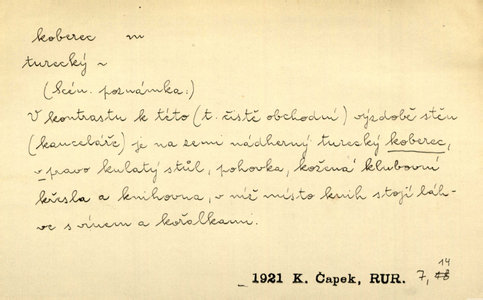 koberec m
turecký ~
(Scén. poznámka:)
V kontrastu k této (t. čistě obchodní) výzdobě stěn
(kanceláře) je na zemi nádherný turecký koberec,
v pravo kulatý stůl, pohovka, kožená klubovní
křesla a knihovna, v níž místo knih stojí láh-
ve s vínem a kořalkami.
14
1921 K. Čapek, RUR. 7, 18